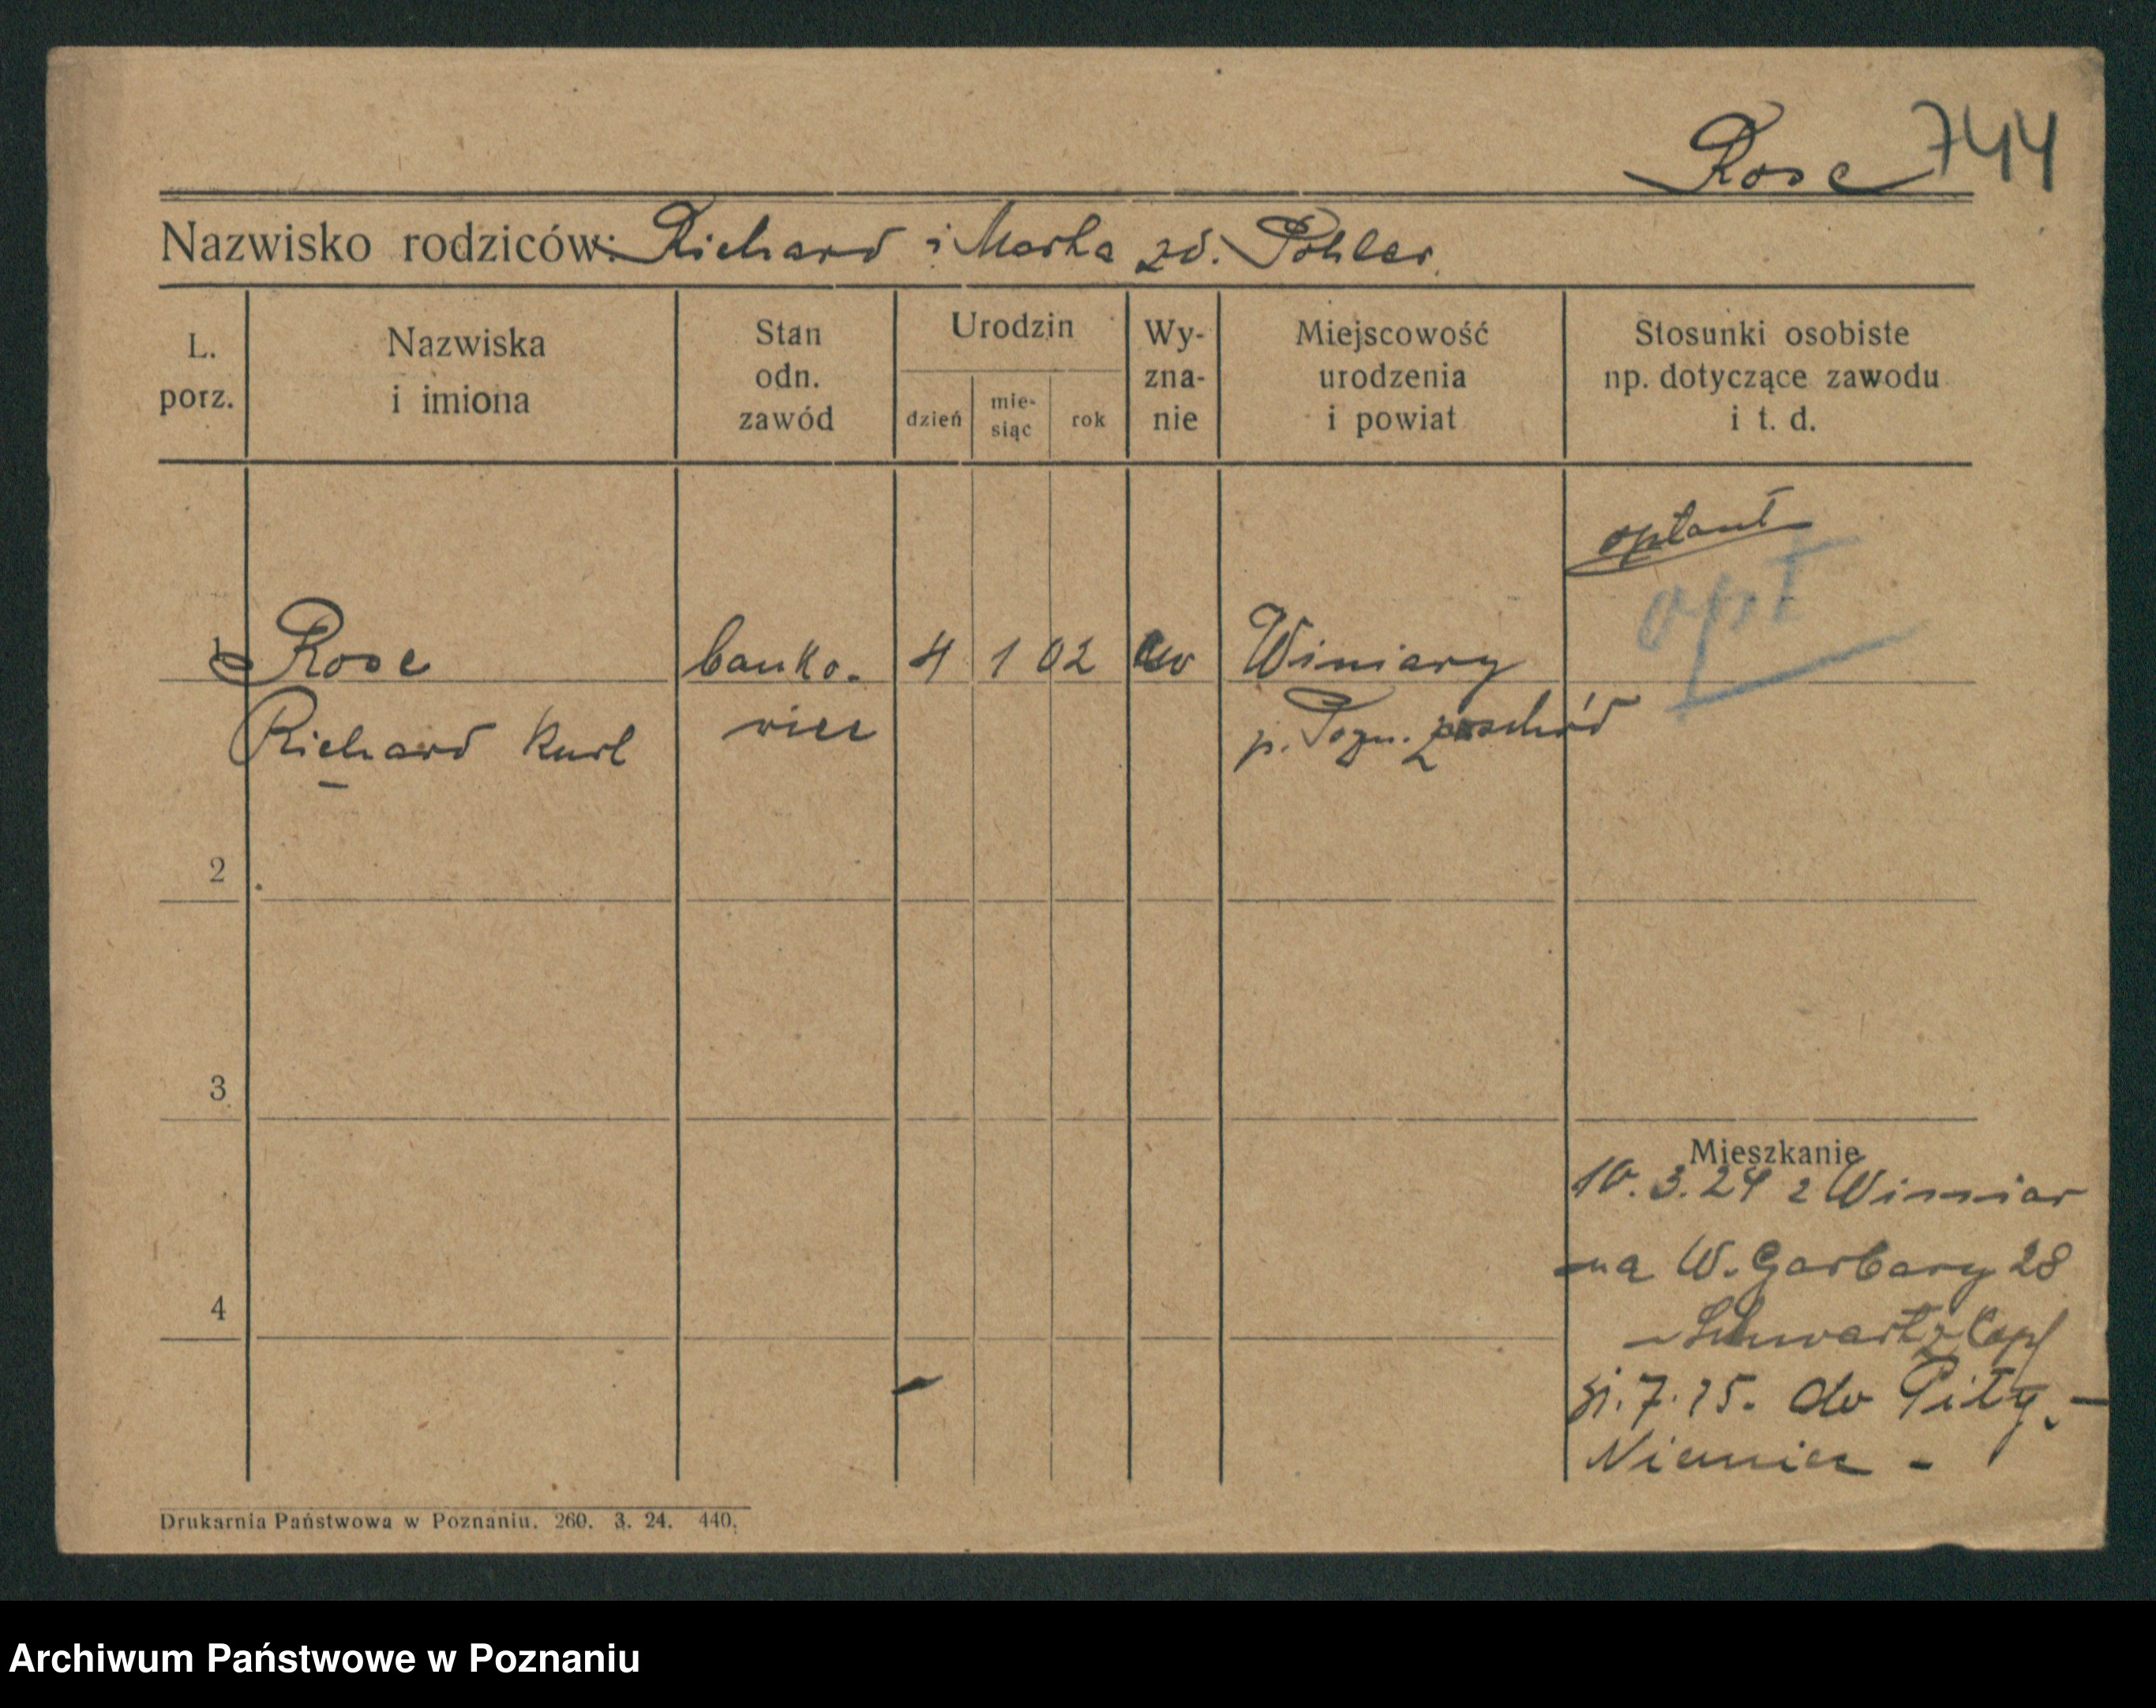 Rose 744
Nazwisko rodziców: Richard i Martha zd. Pohler.
L. porz.
Nazwiska i imiona
Stan odn. zawód
Urodzin
dzień
mie- siąc
rok
Wy- zna- nie
Miejscowość urodzenia i powiat
Stosunki osobiste np. dotyczące zawodu i t. d.
optant
opt
1 Rose banko- 4 1 02 ew Winiary
Richard Kurt wiec p. Pozn. zachód
2
3
4
Mieszkanie
10.3.24 z Winiar
na W. Garbary 28
Schwartzkopf
7.25. do Piły.-
Niemiec -
Drukarnia Państwowa w Poznaniu. 260. 3. 24. 440.
Archiwum Państwowe w Poznaniu